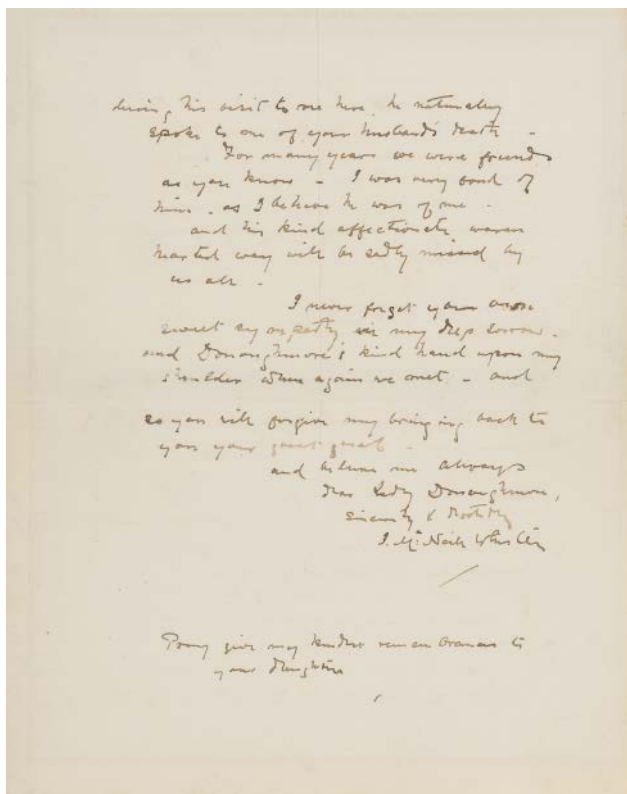 during his visit to me here, he naturally
spoke to me of your husband's death -
For many years we were friends
as you know - I was very fond of
him - as I believe he was of me -
and his kind affectionate warm
hearted way will be sadly missed by
us all -
I never forget your own
sweet sympathy in my deep sorrow -
and Donoughmore's kind hand upon my
shoulder when again we met - and
so you will forgive my bringing back to
you your great grief -
and believe me always
dear Lady Donoughmore,
sincerely &
J. McNeill Whistler
Pray give my kindest remembrances to
your daughters